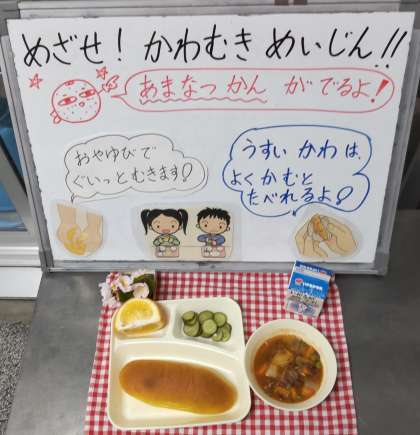 めざせ！ かわむき めいじん!!
あまなつ かん が でるよ！
おやゆびで
ぐいっとむきます！
うすい かわ は、
よく かむと
たべれるよ！